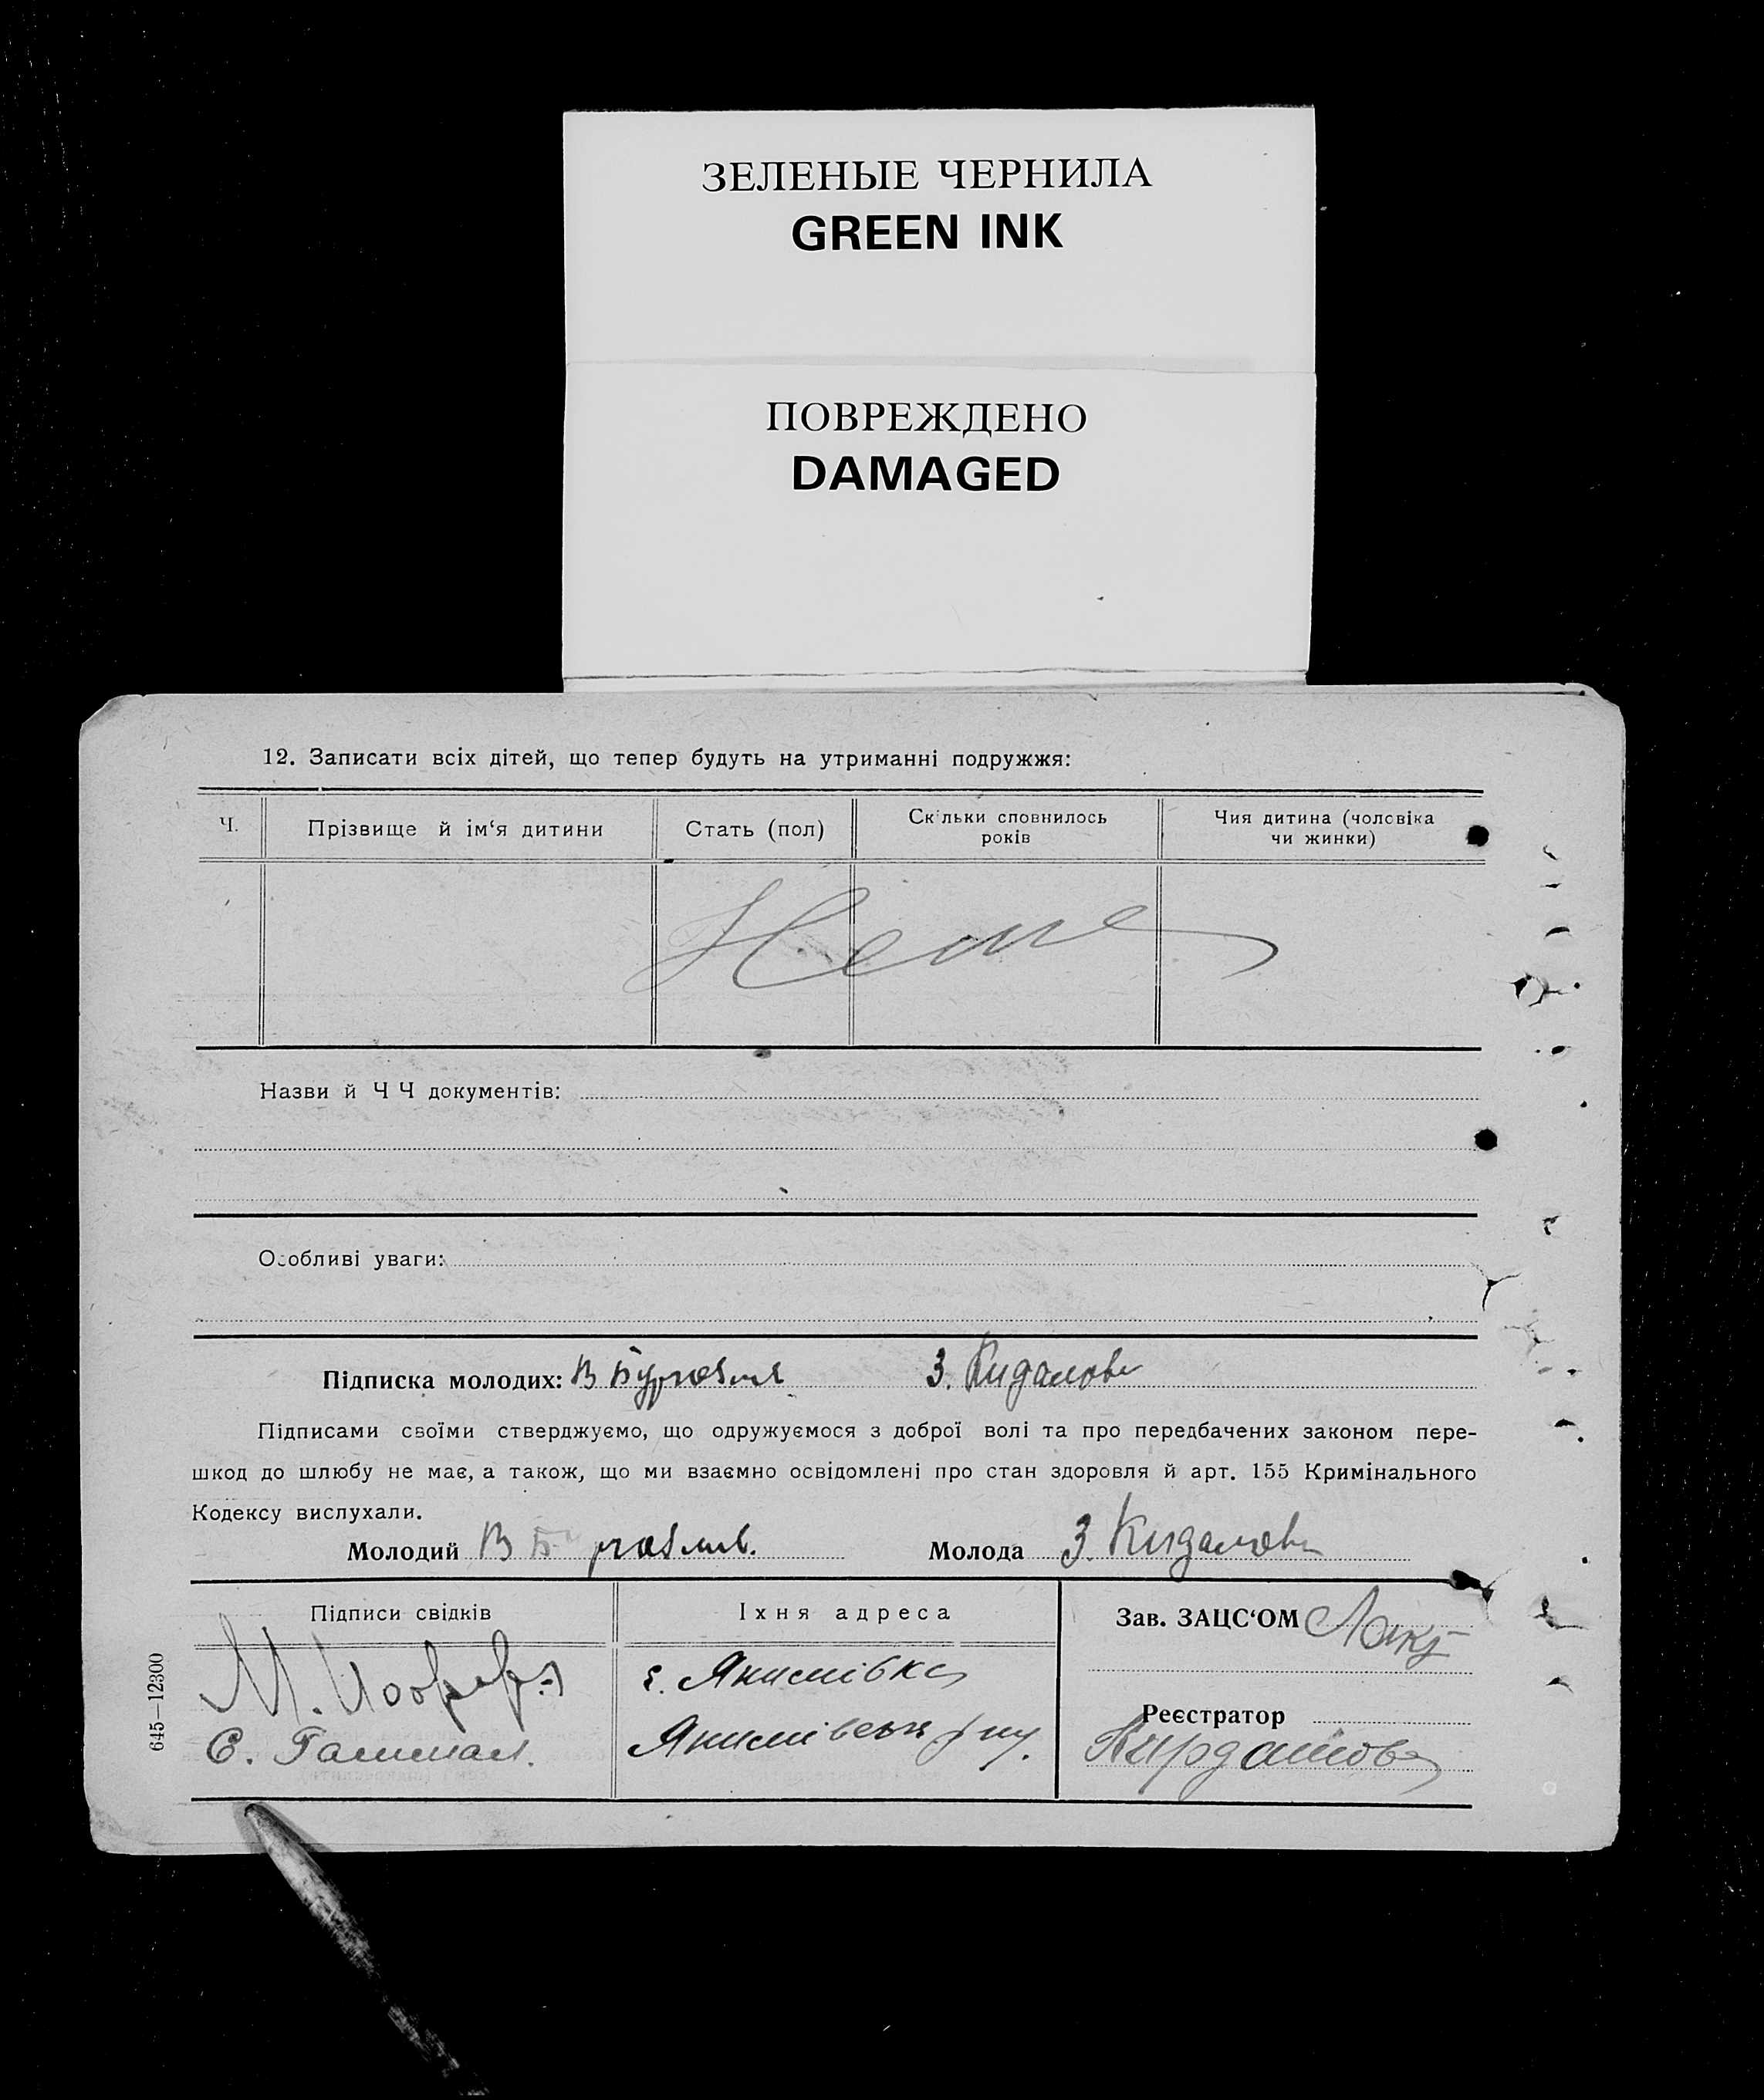 ЗЕЛЕНЫЕ ЧЕРНИЛА
GREEN INK
ПОВРЕЖДЕНО
DAMAGED
12. Записати всіх дітей, що тепер будуть на утриманні подружжя:
Ч.
Прізвище й ім‘я дитини
Стать (пол)
Скільки сповнилось
років
Чия дитина (чоловіка
чи жинки)
Назви й Ч Ч документів:
Особливі уваги:
Підписка молодих: В З. Кидалова
Підписами своїми стверджуємо, що одружуємося з доброї волі та про передбачених законом пере-
шкод до шлюбу не має, а також, що ми взаємно освідомлені про стан здоровля й арт. 155 Кримінального
Кодексу вислухали.
Молодий В
Молода З. Кидалова
Підписи свідків
Їхня адреса
Зав. ЗАЦС‘ОМ
М.
с. Якимівка
Реєстратор
С.
645—12300